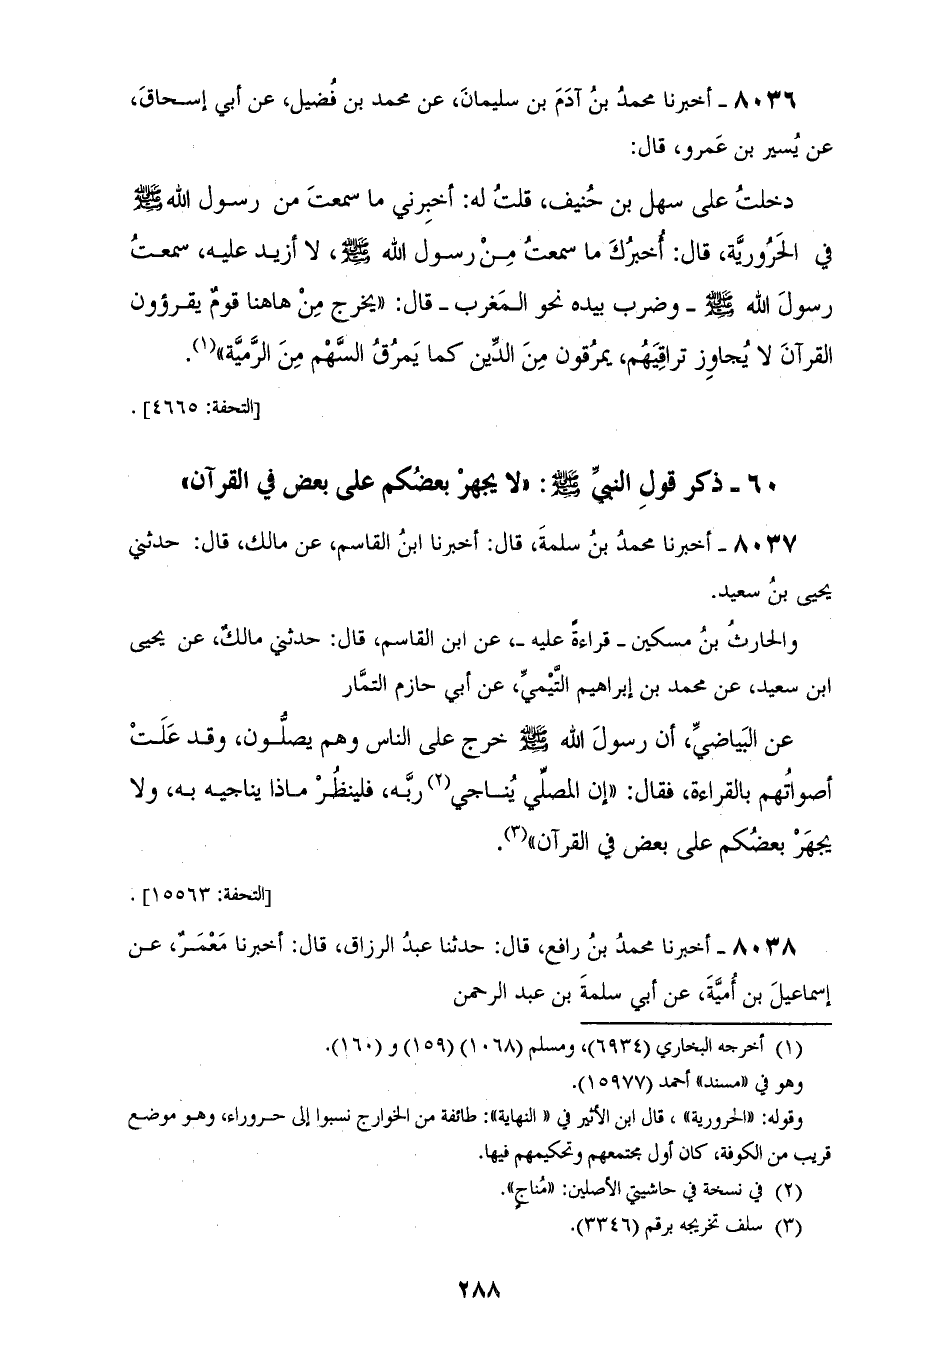 ٨٠٣٦ ـ أخبرنا محمدُ بنُ آدَمَ بن سليمانَ، عن محمد بن فُضيل، عن أبي إسحاقَ،
عن يُسير بن عَمرو، قال:
دخلتُ على سهل بن حُنيف، قلتُ له: أخبِرني ما سمعتَ من رسول الله ﷺ
في الحَرُوريَّة، قال: أُخبرُكَ ما سمعتُ مِنْ رسول الله ﷺ، لا أزيد عليه، سمعتُ
رسولَ الله ﷺ ـ وضرب بيده نحو المَغرب ـ قال: «يخرج مِنْ هاهنا قومٌ يقرؤون
القرآنَ لا يُجاوِز تراقِيَهُم، يمرُقون مِنَ الدِّين كما يَمرُقُ السَّهْم مِنَ الرَّميَّة»(١).
[التحفة: ٤٦٦٥] .
٦٠ ـ ذكر قولِ النبيِّ ﷺ: «لا يجهرْ بعضُكم على بعض في القرآن»
٨٠٣٧ ـ أخبرنا محمدُ بنُ سلمةَ، قال: أخبرنا ابنُ القاسم، عن مالك، قال: حدثني
يحيى بنُ سعيد.
والحارثُ بنُ مسكين ـ قراءةً عليه ـ، عن ابن القاسم، قال: حدثني مالكٌ، عن يحيى
ابن سعيد، عن محمد بن إبراهيم التَّيْميِّ، عن أبي حازم التمَّار
عن البَياضيِّ، أن رسولَ الله ﷺ خرج على الناس وهم يصلُّون، وقد عَلَتْ
أصواتُهم بالقراءة، فقال: «إن المصلِّي يُناجي(٢) ربَّه، فلينظُرْ ماذا يناجيه به، ولا
يجهَرْ بعضُكم على بعض في القرآن»(٣).
[التحفة: ١٥٥٦٣] .
٨٠٣٨ ـ أخبرنا محمدُ بنُ رافع، قال: حدثنا عبدُ الرزاق، قال: أخبرنا مَعْمَرٌ، عن
إسماعيلَ بن أُميَّةَ، عن أبي سلمةَ بن عبد الرحمن
(١) أخرجه البخاري (٦٩٣٤)، ومسلم (١٠٦٨) (١٥٩) و (١٦٠).
وهو في «مسند» أحمد (١٥٩٧٧).
وقوله: «الحرورية» ، قال ابن الأثير في « النهاية»: طائفة من الخوارج نسبوا إلى حروراء، وهو موضع
قريب من الكوفة، كان أول مجتمعهم وتحكيمهم فيها.
(٢) في نسخة في حاشيتي الأصلين: «مُناجٍ».
(٣) سلف تخريجه برقم (٣٣٤٦).
٢٨٨